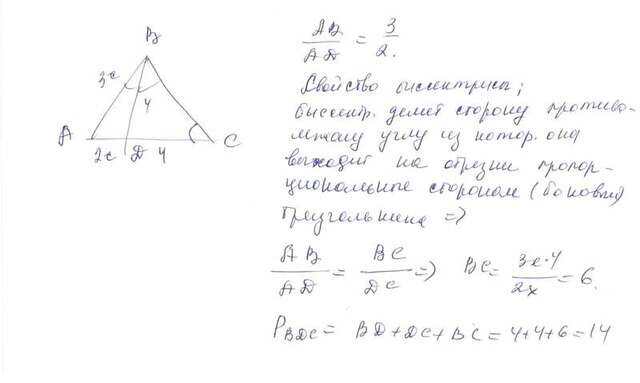 B
3x
4
A
2x
D
4
C
AB/AD = 3/2.
Свойство биссектрисы;
биссектр. делит сторону противо-
лежащую углу из котор. она
выходит на отрезки пропор-
циональные сторонам (боковым)
треугольника =>
AB/AD = BC/DC => BC = 3x·4/2x = 6.
P BDC = BD + DC + BC = 4+4+6 = 14